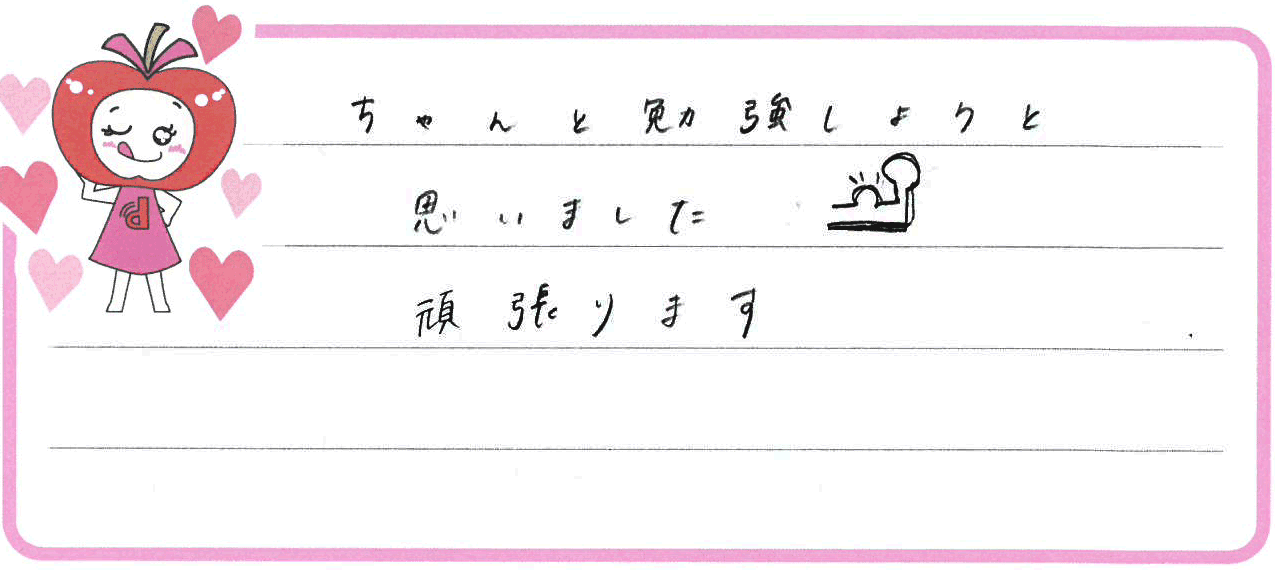 ちゃんと勉強しようと
思いました
頑張ります